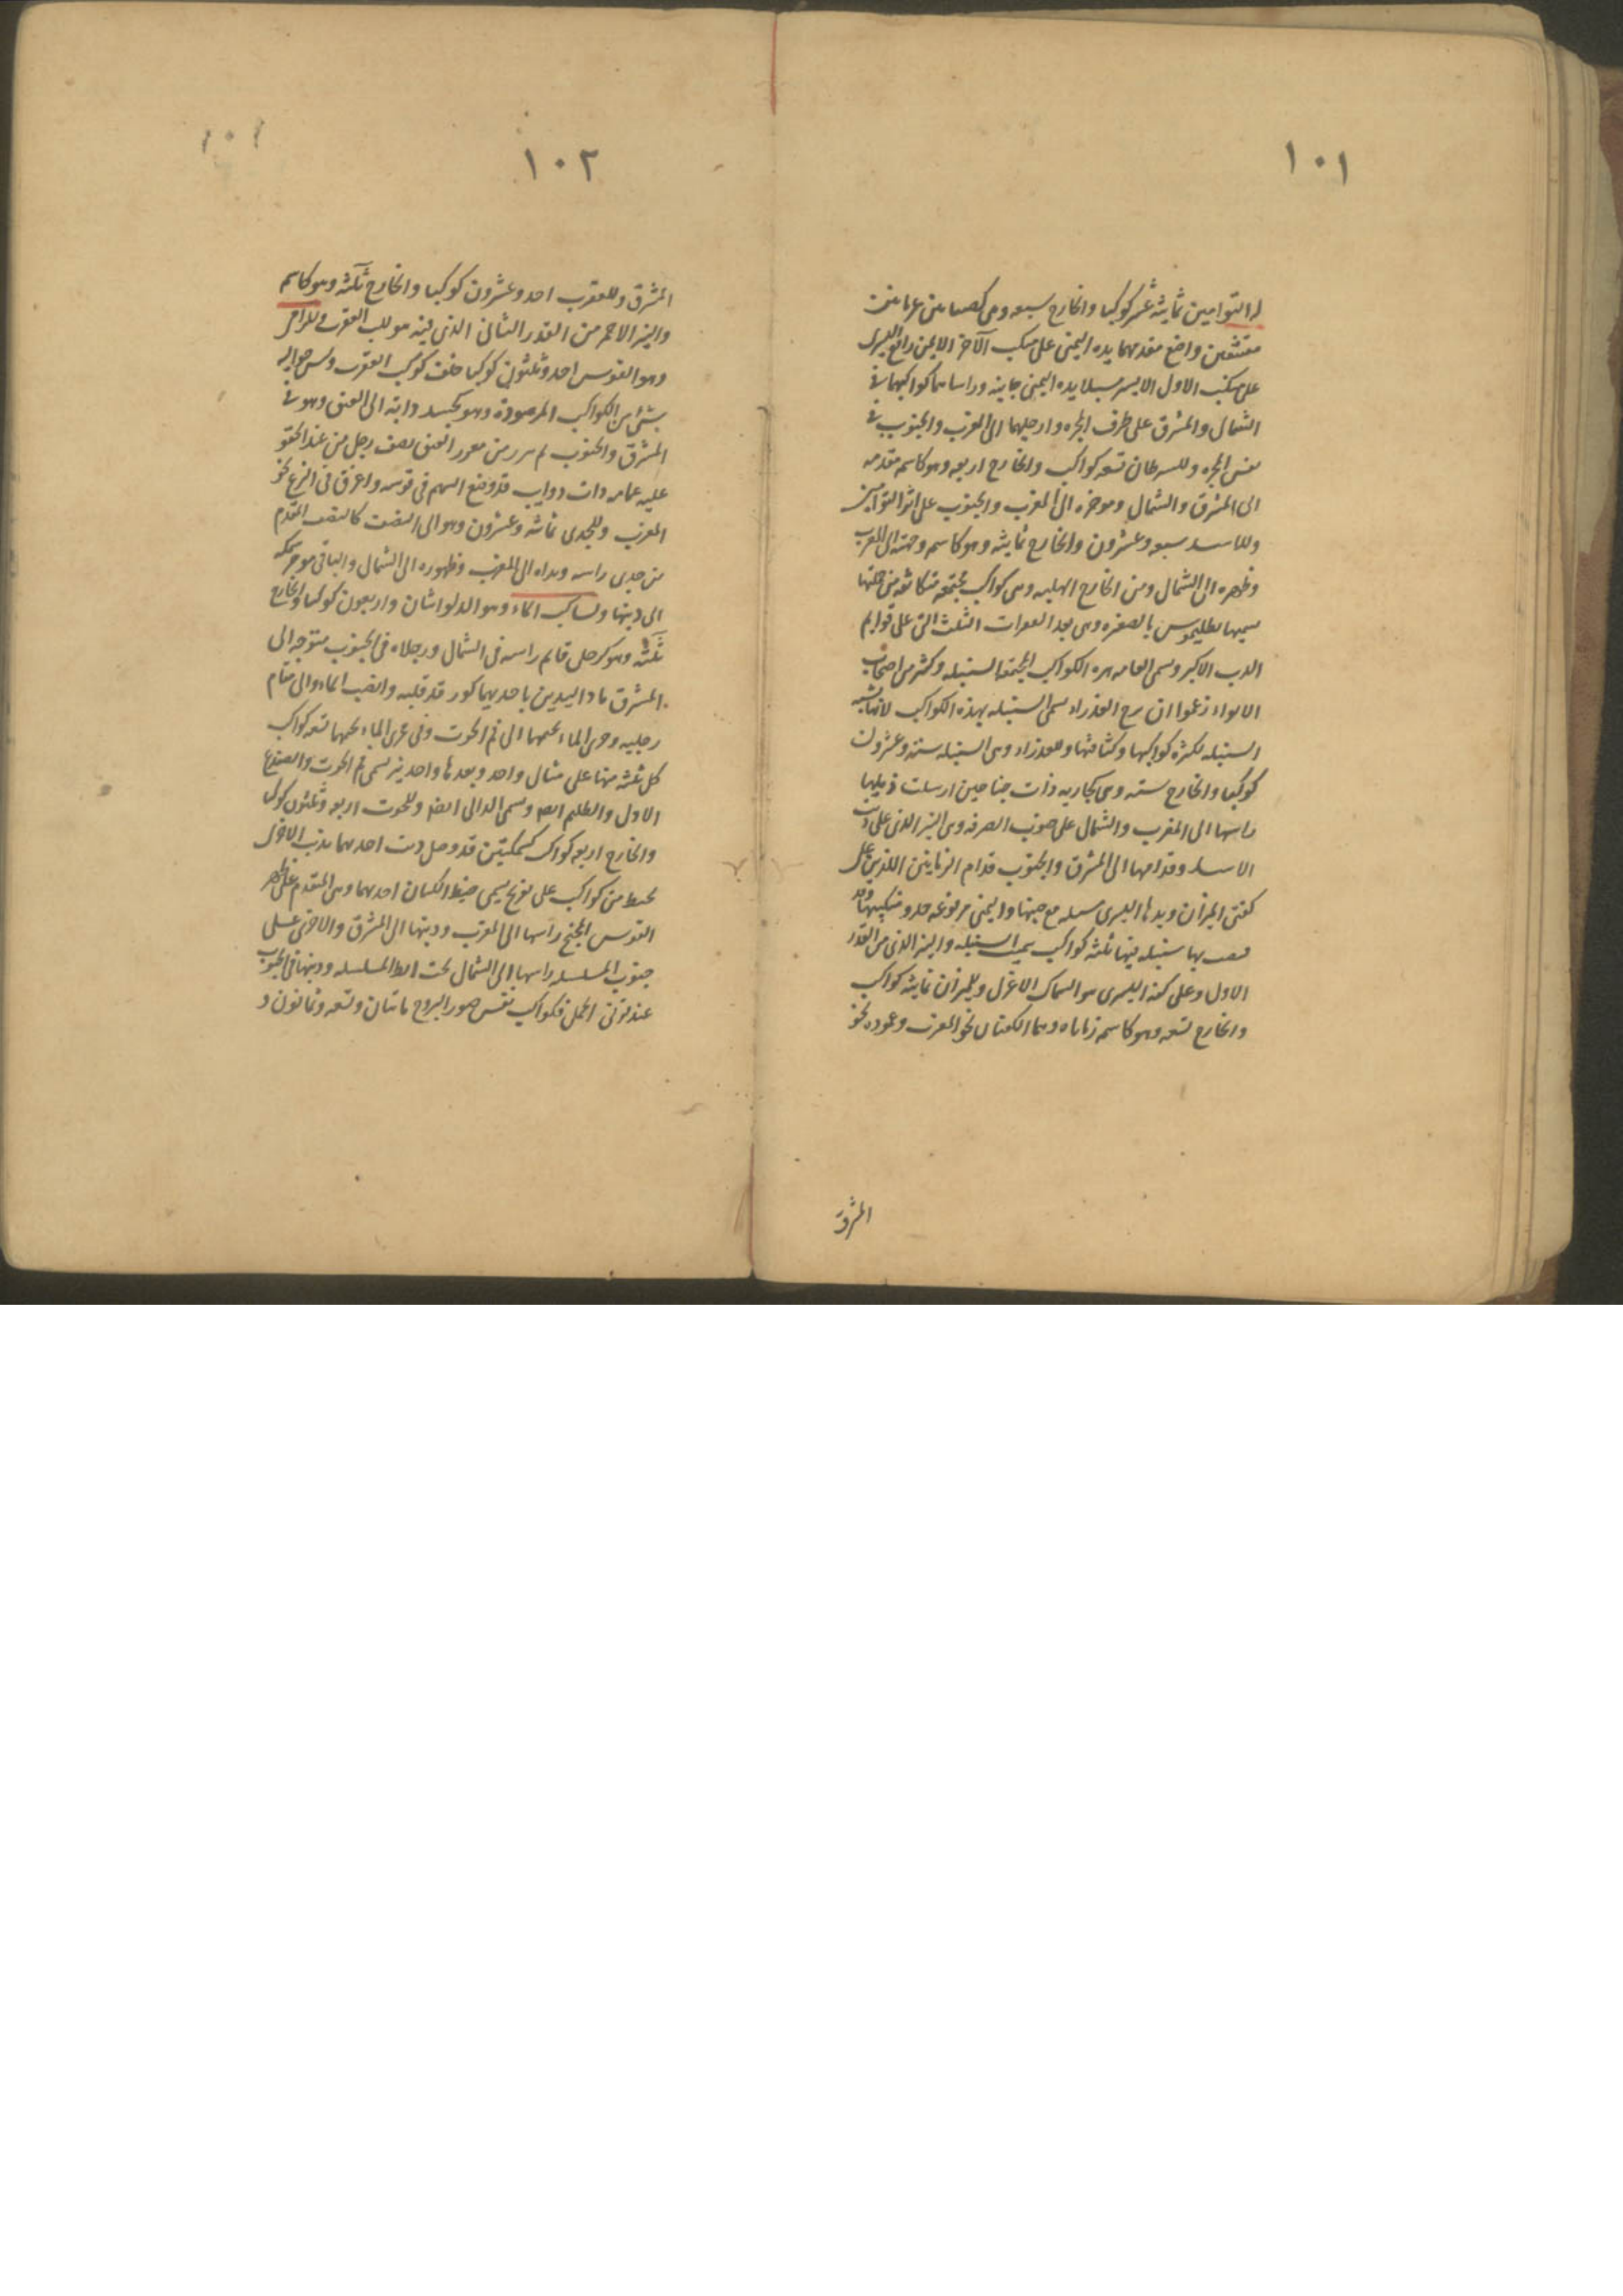 ١٠١
التوامين ثمانية عشر كوكبا والخارج سبعه وهى
واضع مقدمهما يده اليمنى على منكب الآخر الايمن رافع اليسرى
على منكب الاول الايسر يده اليمنى وراساهما كواكبهما فى
الشمال والمشرق على طرف المجره وارجلهما الى المغرب والجنوب فى
نفس المجره وللسرطان تسعه كواكب والخارج اربعه وهو كاسم مقدمه
الى المشرق والشمال وموخره الى المغرب والجنوب على اثر التوامين
وللاسد سبعه وعشرون والخارج ثمانيه وهو كاسم وجهه الى المغرب
وظهره الى الشمال ومن الخارج الهلبه وهى كواكب مجتمعه متكاثفه
يسميها بطليموس بالضفيره وهى بعد الثلث التى على قوايم
الدب الاكبر وسمى العامه هذه الكواكب المجتمعه السنبله وكثير من اصحاب
الانواء زعموا ان برج العذراء سمى السنبله بهذه الكواكب لانها تشبه
السنبله لكثره كواكبها وكثافتها وللعذراء وهى السنبله ستة وعشرون
كوكبا والخارج سته وهى كجاريه ذات جناحين ارسلت ذيلها
راسها الى المغرب والشمال على جنوب الصرفه وهى النير الذى على ذنب
الاسد وقدامها الى المشرق والجنوب قدام الزبانيين اللذين على
كفتى الميزان ويدها اليسرى مع جنبها واليمنى مرفوعه حذو منكبيها وقد
بها سنبله فيها ثلثه كواكب يسمى السنبله والنير الذى من القدر
الاول وعلى كفه اليسرى هو السماك الاعزل وللميزان ثمانيه كواكب
والخارج تسعه وهو كاسم وهما الكفتان نحو المغرب وعموده نحو
المشرق
١٠٢
١٠١
المشرق وللعقرب احد وعشرون كوكبا والخارج ثلثه وهو كاسم
والنير الاحمر من القدر الثانى الذى فيه هو قلب العقرب وللرامى
وهو القوس احد وثلثون كوكبا خلف كوكب العقرب وليس حواليه
شئ من الكواكب المرصودة وهو كجسد دابه الى العنق وهو فى
المشرق والجنوب ثم من العنق نصف رجل من عند الحقو
عليه عمامه ذات ذوايب قد وضع السهم فى قوسه واغرق فى النزع نحو
المغرب وللجدى ثمانيه وعشرون وهو الى النصف كالنصف المقدم
من جدى راسه ويداه الى المغرب وظهوره الى الشمال والباقى موخر سمكه
الى ذنبها ولساكب الماء وهو الدلو اثنان واربعون كوكبا والخارج
ثلثه وهو كرجل قايم راسه فى الشمال ورجلاه فى الجنوب متوجه الى
المشرق ماد اليدين باحديهما كوز قد قلبه وانصب الماء الى مقام
رجليه وجرى الماء تحتهما الى فم الحوت وفى مجرى الماء تحتهما تسعه كواكب
كل ثلثه منها على مثال واحد وبعدها واحد نير سمى فم الحوت والضفدع
الاول والظليم ايضا وسمى الدالى ايضا وللحوت اربعه وثلثون كوكبا
والخارج اربعه كواكب كسمكتين قد وصل ذنب احدهما بذنب الاخرى
بخيط من كواكب على تعريج يسمى خيط الكتان احدهما وهى المتقدم على ظهر
الفرس المجنح راسها الى المغرب وذنبها الى المشرق والاخرى على
جنوب المسلسله راسها الى الشمال تحت ابط المسلسله وذنبها فى الجنوب
عند قرنى الحمل فكواكب نفس صور البروج ماتتان وتسعه وثمانون و